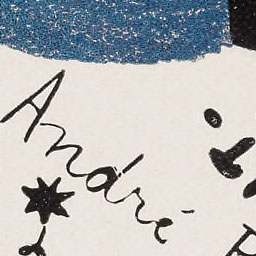 André